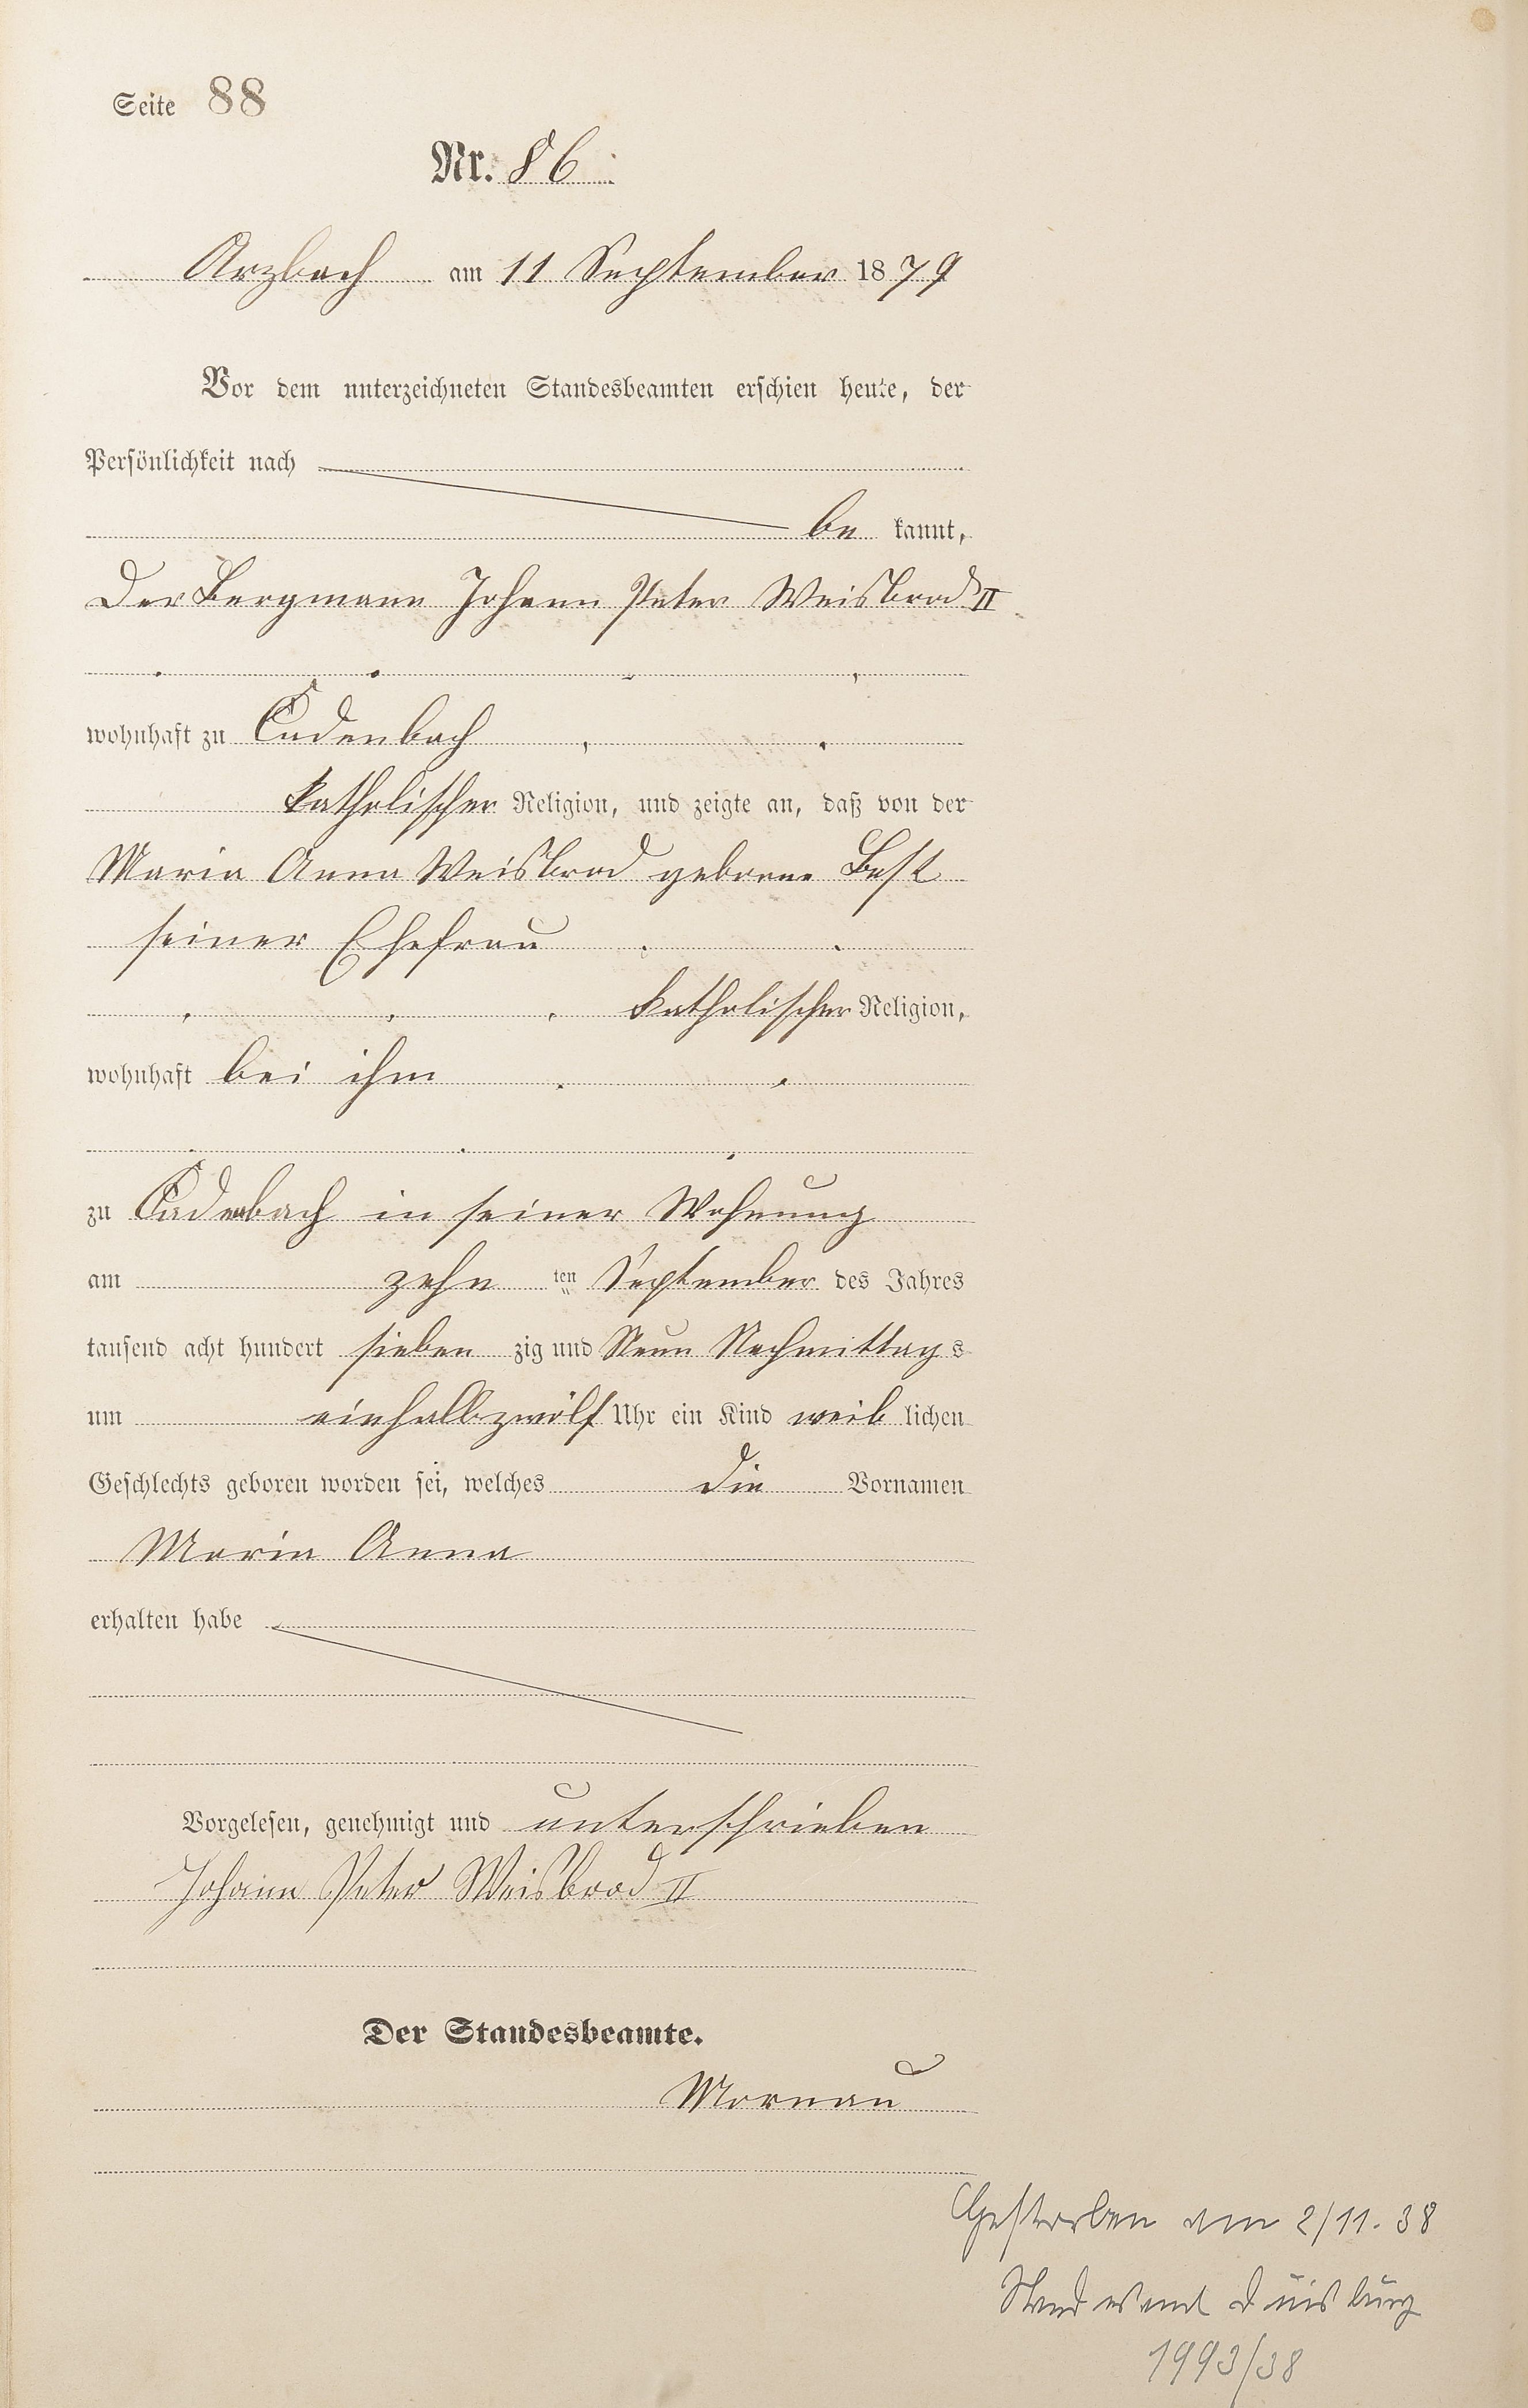 Seite 88
Nr. 86
Arzbach am 11 September 1879
Vor dem unterzeichneten Standesbeamten erschien heute, der
Persönlichkeit nach
be kannt,
Der Bergmann Johann Peter Weisbrod II
wohnhaft zu Cadenbach
katholischer Religion, und zeigte an, daß von der
Maria Anna Weisbrod geborne Best
seiner Ehefrau
katholischer Religion,
wohnhaft bei ihm
zu Cadenbach in seiner Wohnung
am zehn ten September des Jahres
tausend acht hundert sieben zig und Neun Nachmittags
um einhalbzwölf Uhr ein Kind weib lichen
Geschlechts geboren worden sei, welches die Vornamen
Maria Anna
erhalten habe
Vorgelesen, genehmigt und unterschrieben
Johann Peter Weisbrod II
Der Standesbeamte.
Mornau
Gestorben am 2/11. 38
Standesamt Duisburg
1993/38